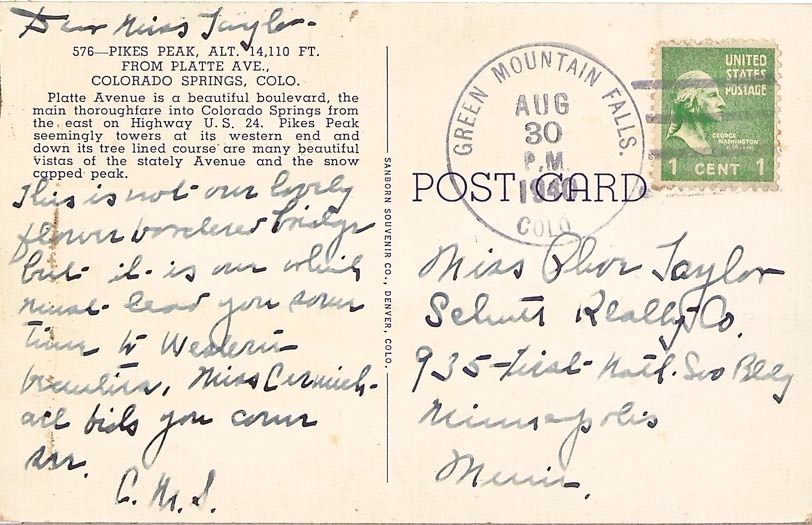 Dear Miss Taylor-
576—PIKES PEAK, ALT. 14,110 FT.
FROM PLATTE AVE.,
COLORADO SPRINGS, COLO.
Platte Avenue is a beautiful boulevard, the
main thoroughfare into Colorado Springs from
the east on Highway U.S. 24. Pikes Peak
seemingly towers at its western end and
down its tree lined course are many beautiful
vistas of the stately Avenue and the snow
capped peak.
This is not our lovely
flower bordered bridge
but it is one which
must lead you some
time to Western
beauties, Miss
all bids you come
C. M. S.
SANBORN SOUVENIR CO., DENVER, COLO.
GREEN MOUNTAIN FALLS.
AUG
30
P.M.
COLO
UNITED
STATES
POSTAGE
GEORGE
WASHINGTON
1 CENT 1
POST CARD
Miss Taylor
Realty Co.
935-First Natl. Soo Bldg
Minneapolis
Minn.